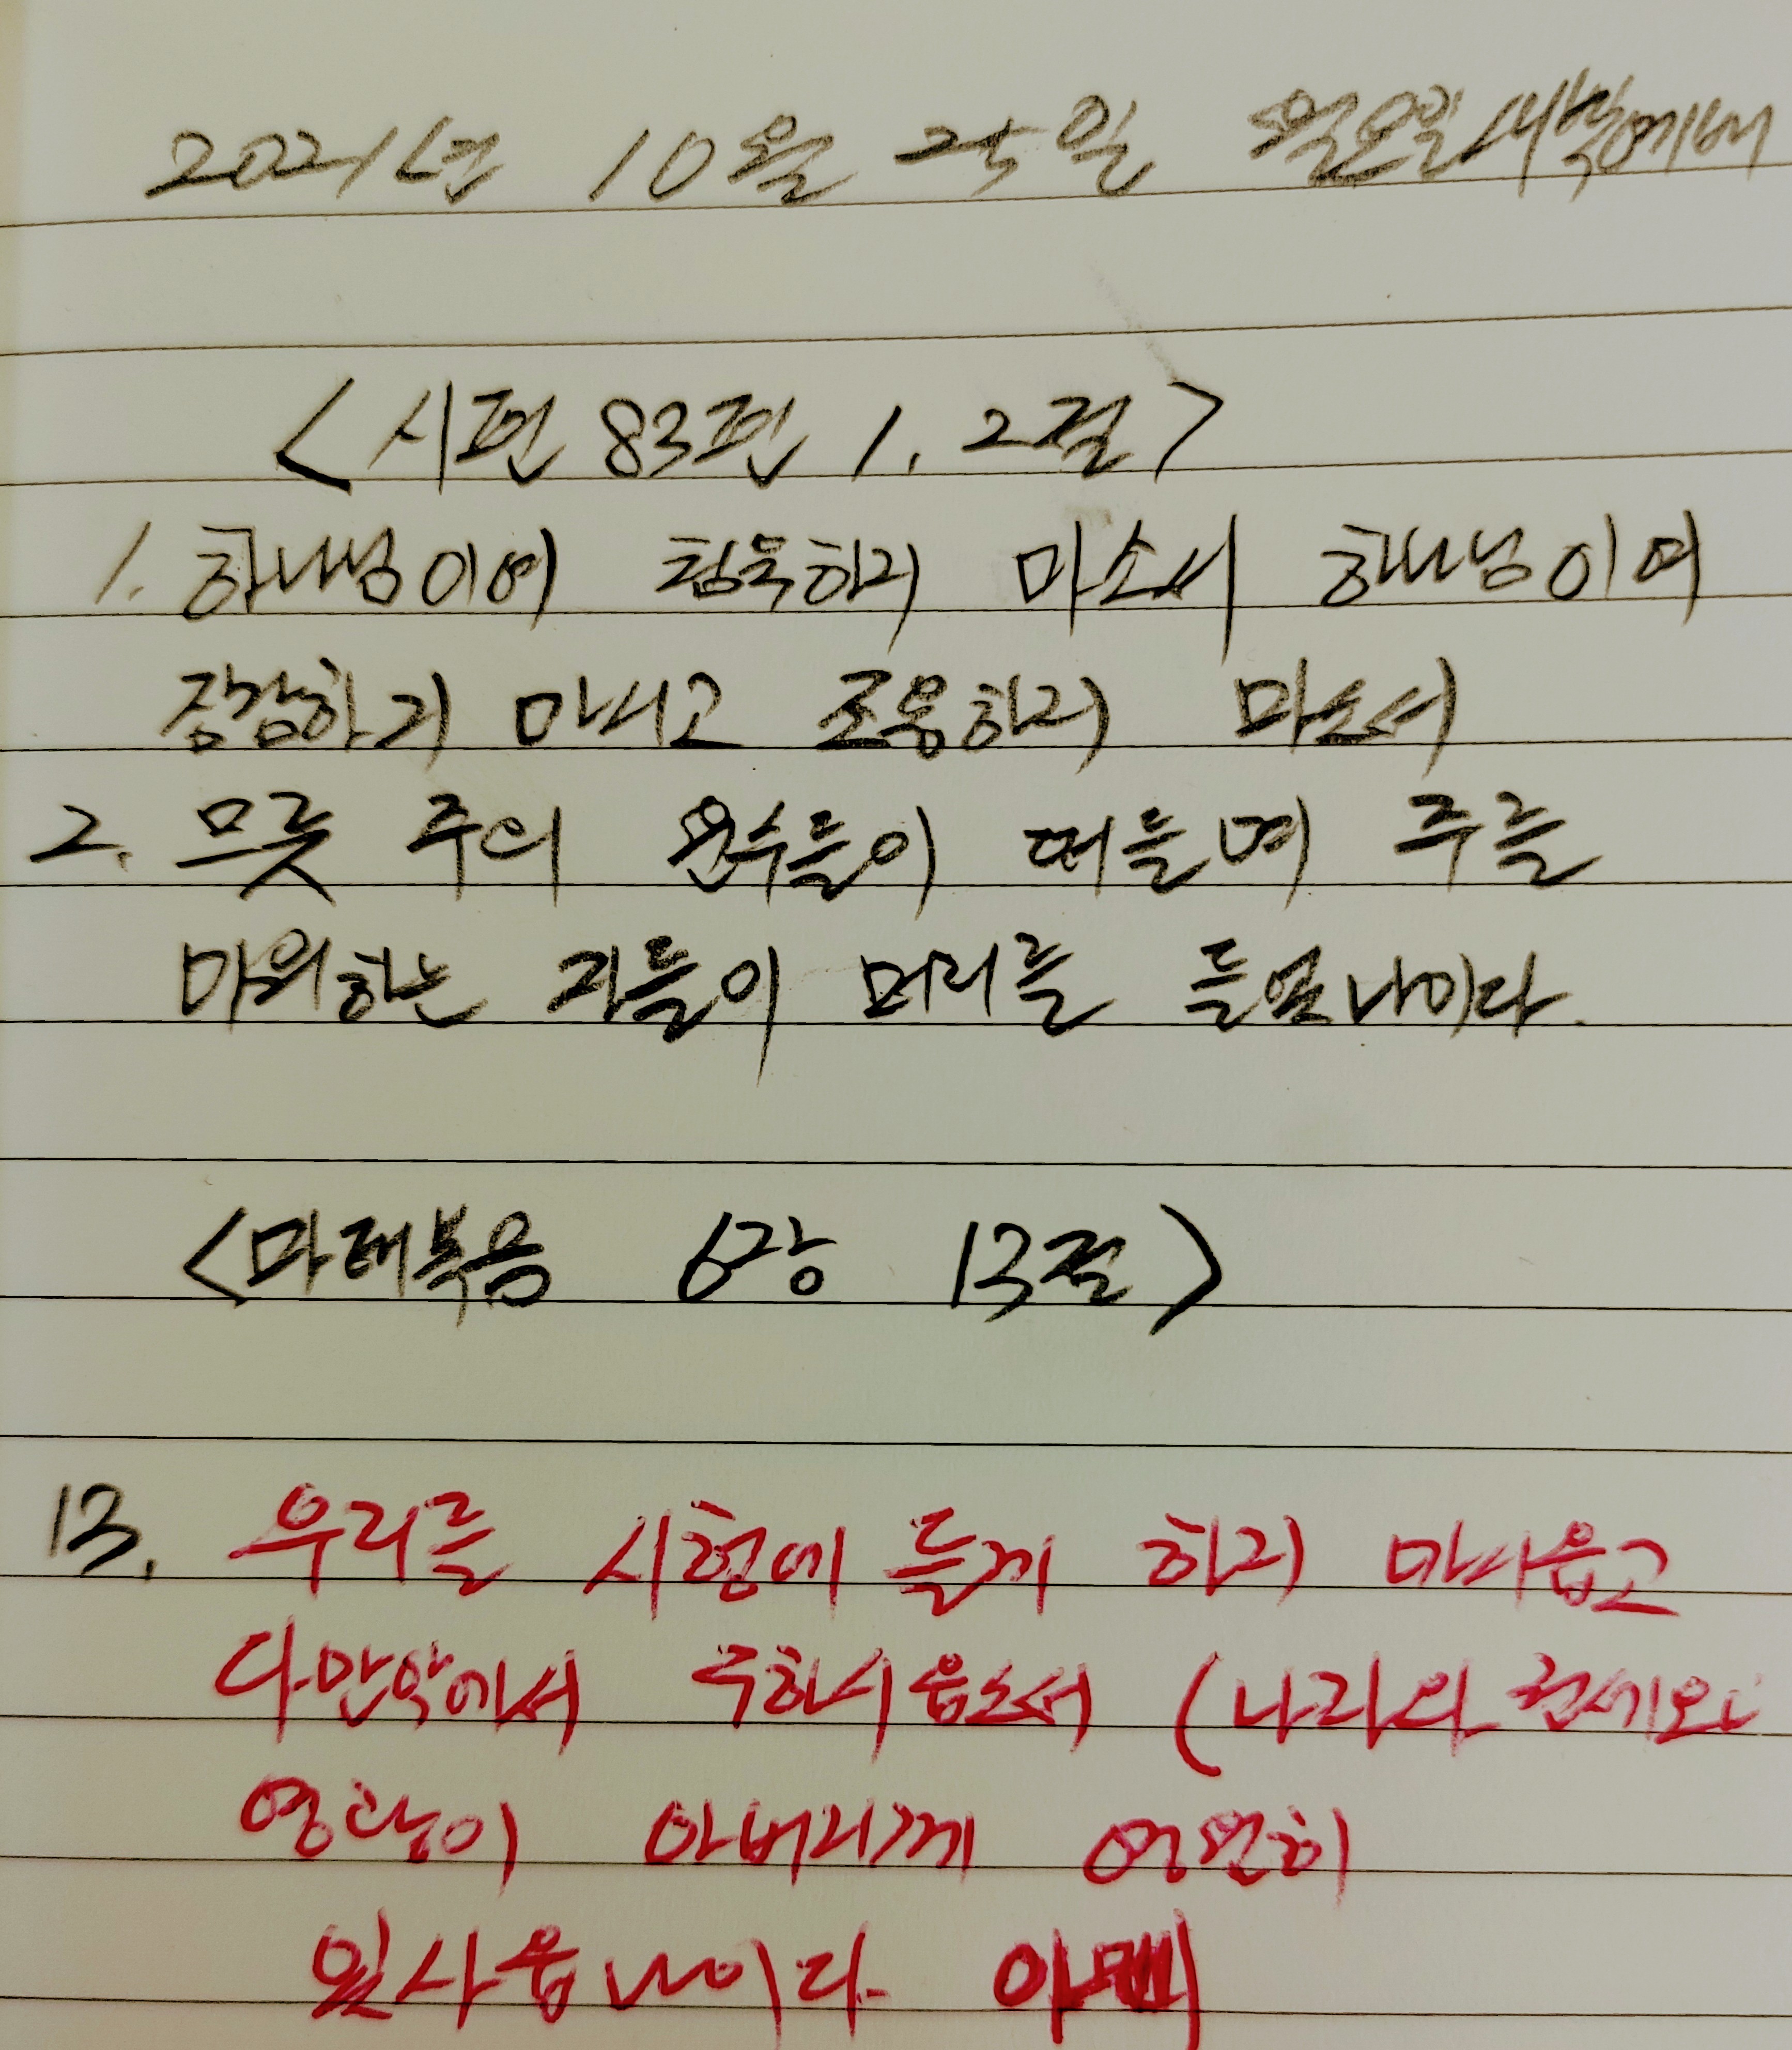 2021년 10월 25일 월요일새벽예배
<시편 83편 1, 2절>
1. 하나님이여 침묵하지 마소서 하나님이여
잠잠하지 마시고 조용하지 마소서
2. 무릇 주의 원수들이 떠들며 주를
미워하는 자들이 머리를 들었나이다.
<마태복음 6장 13절>
13. 우리를 시험에 들게 하지 마시옵고
다만악에서 구하시옵소서 (나라와 권세와
영광이 아버지께 영원히
있사옵나이다 아멘